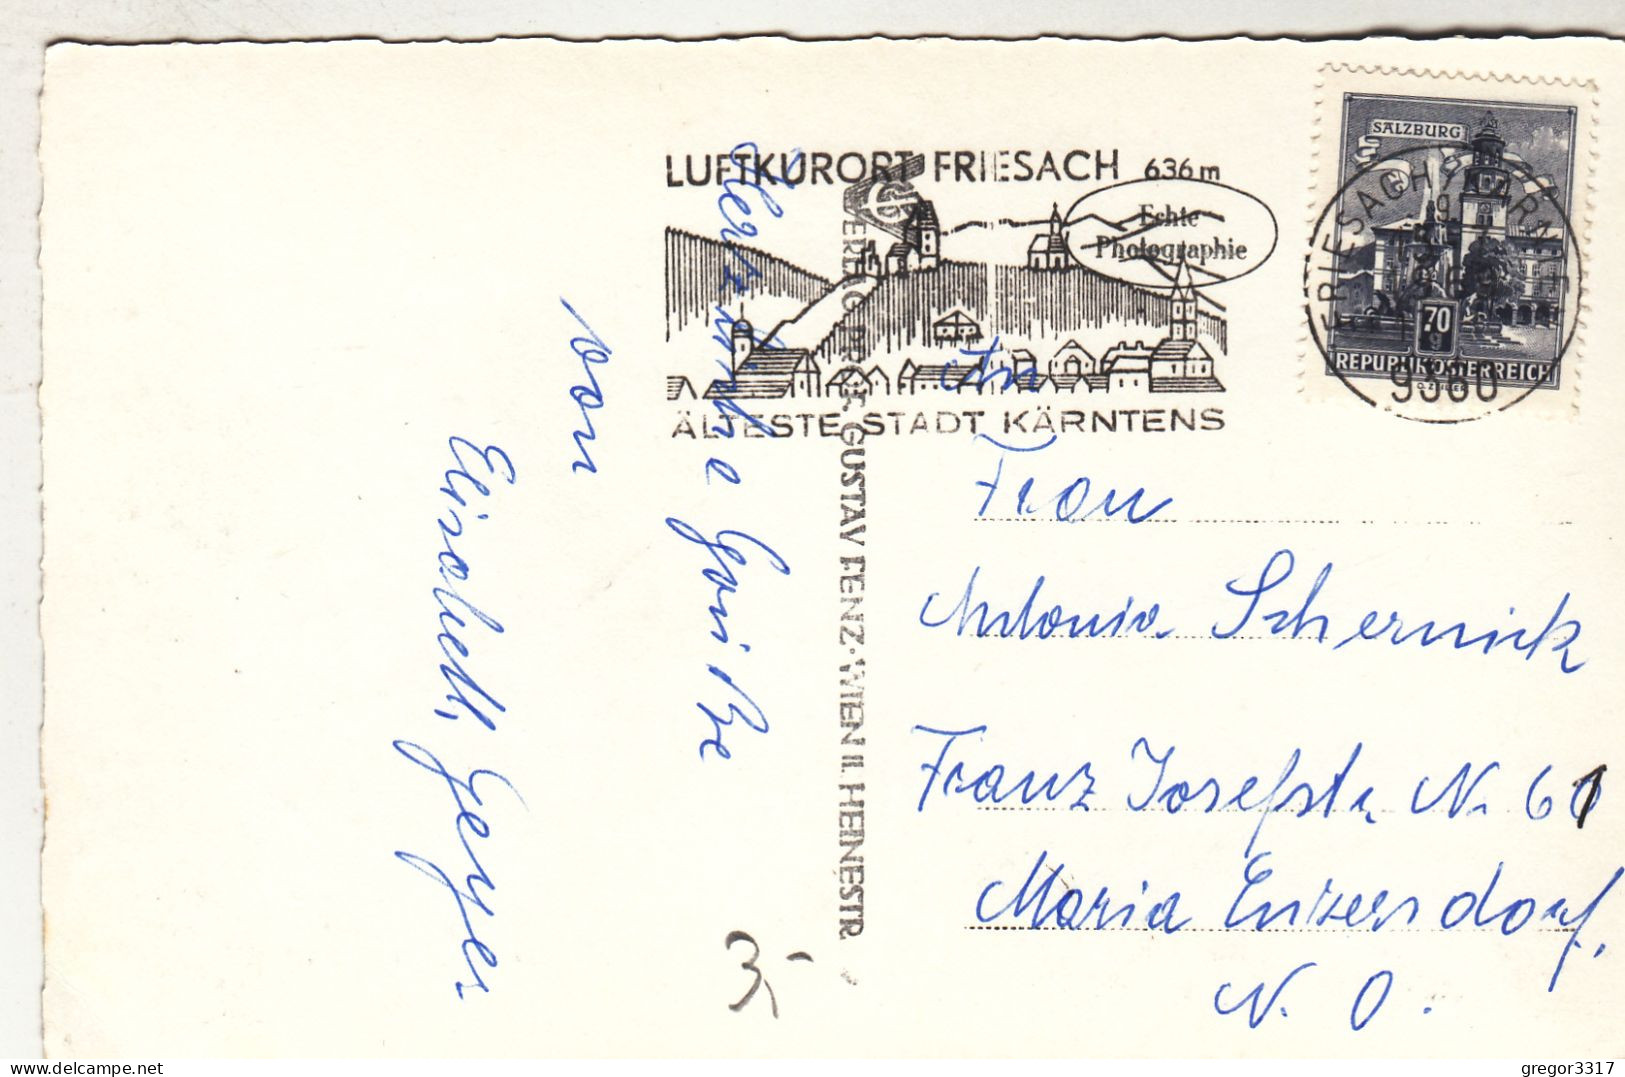 Herzliche Grüße
von
Elisabeth Geyer
VERLAG PROF. GUSTAV FENZ · WIEN II. HEINESTR.
LUFTKURORT FRIESACH 636 m
Echte
Photographie
ÄLTESTE STADT KÄRNTENS
SALZBURG
70
REPUBLIK ÖSTERREICH
9360
An
Frau
Antonia Schernick
Franz Josefstr. N. 61
Maria Enzersdorf,
N. O.
3,-
delcampe.net
gregor3317